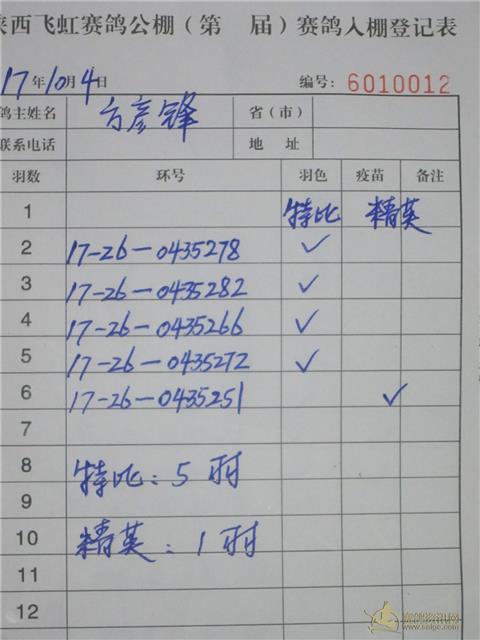 陕西飞虹赛鸽公棚（第 届）赛鸽入棚登记表
17年10月4日 编号: 6010012
鸽主姓名 方彦锋 省（市）
联系电话 地 址
羽数 环号 羽色 疫苗 备注
1 特比 精英
2 17-26-0435278 ✓
3 17-26-0435282 ✓
4 17-26-0435266 ✓
5 17-26-0435272 ✓
6 17-26-0435251 ✓
7
8 特比: 5羽
9
10 精英: 1羽
11
12
赛鸽资讯网
www.saige.com